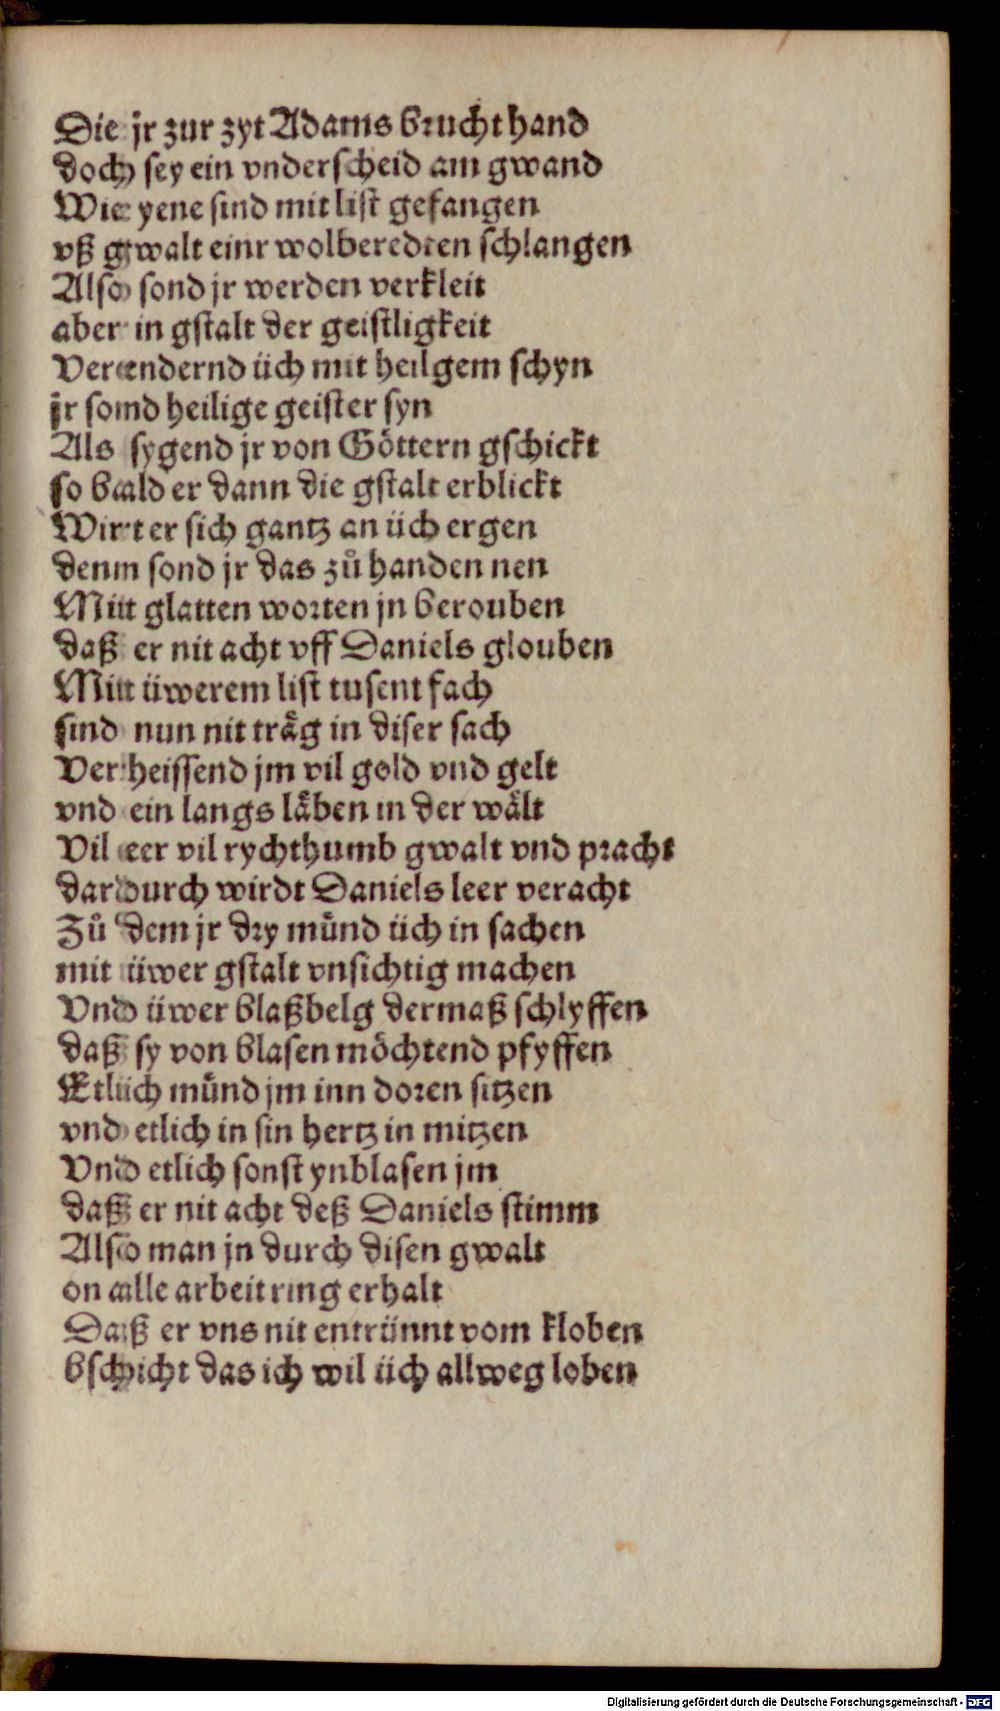 Die jr zur zyt Adams brucht hand
doch sey ein vnderscheid am gwand
Wie yene sind mit list gefangen
vß gwalt einr wolberedten schlangen
Also sond jr werden verkleit
aber in gstalt der geistligkeit
Verendernd üch mit heilgem schyn
jr sond heilige geister syn
Als sygend jr von Göttern gschickt
so bald er dann die gstalt erblickt
Wirt er sich gantz an üch ergen
denn sond jr das zů handen nen
Mit glatten worten jn berouben
daß er nit acht vff Daniels glouben
Mit üwerem list tusent fach
sind nun nit träg in diser sach
Verheissend jm vil gold vnd gelt
vnd ein langs läben in der wält
Vil eer vil rychthumb gwalt vnd pracht
dardurch wirdt Daniels leer veracht
Zů dem jr dry münd üch in sachen
mit üwer gstalt vnsichtig machen
Vnd üwer blaßbelg dermaß schlyffen
daß sy von blasen möchtend pfyffen
Etlich münd jm inn doren sitzen
vnd etlich in sin hertz in mitzen
Vnd etlich sonst ynblasen jm
daß er nit acht deß Daniels stimm
Also man jn durch disen gwalt
on alle arbeit ring erhalt
Daß er vns nit entrünnt vom kloben
bschicht das ich wil üch allweg loben
Digitalisierung gefördert durch die Deutsche Forschungsgemeinschaft - DFG